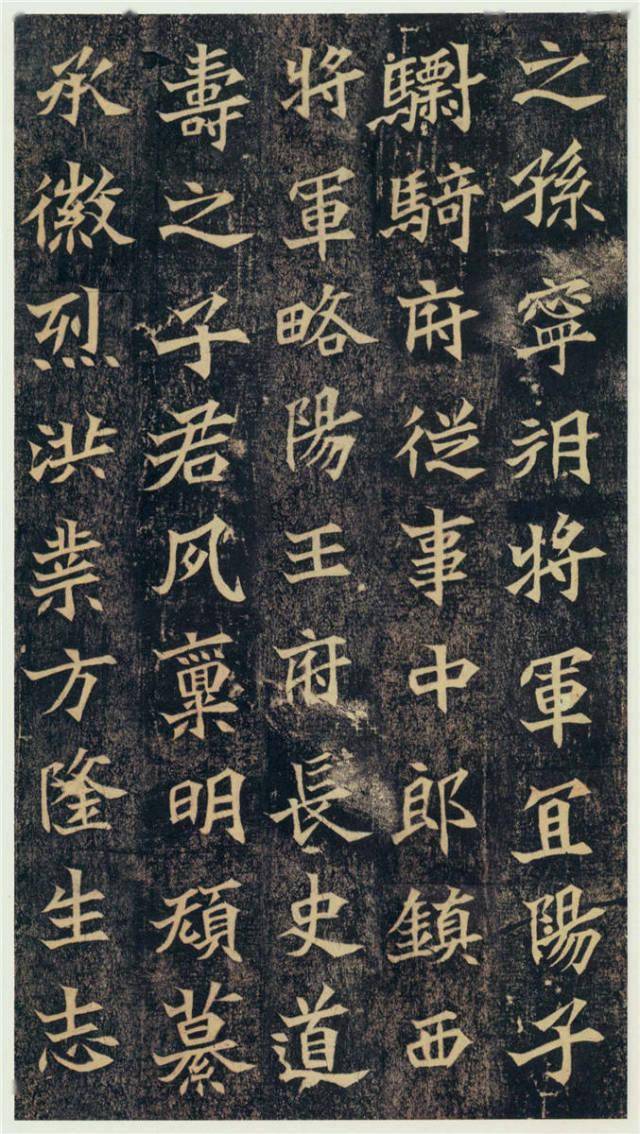 之孫寧朔將軍冝陽子
驃騎府従事中郎鎮西
將軍略陽王府長史道
壽之子君夙稟明頴纂
承徽烈洪業方隆生志